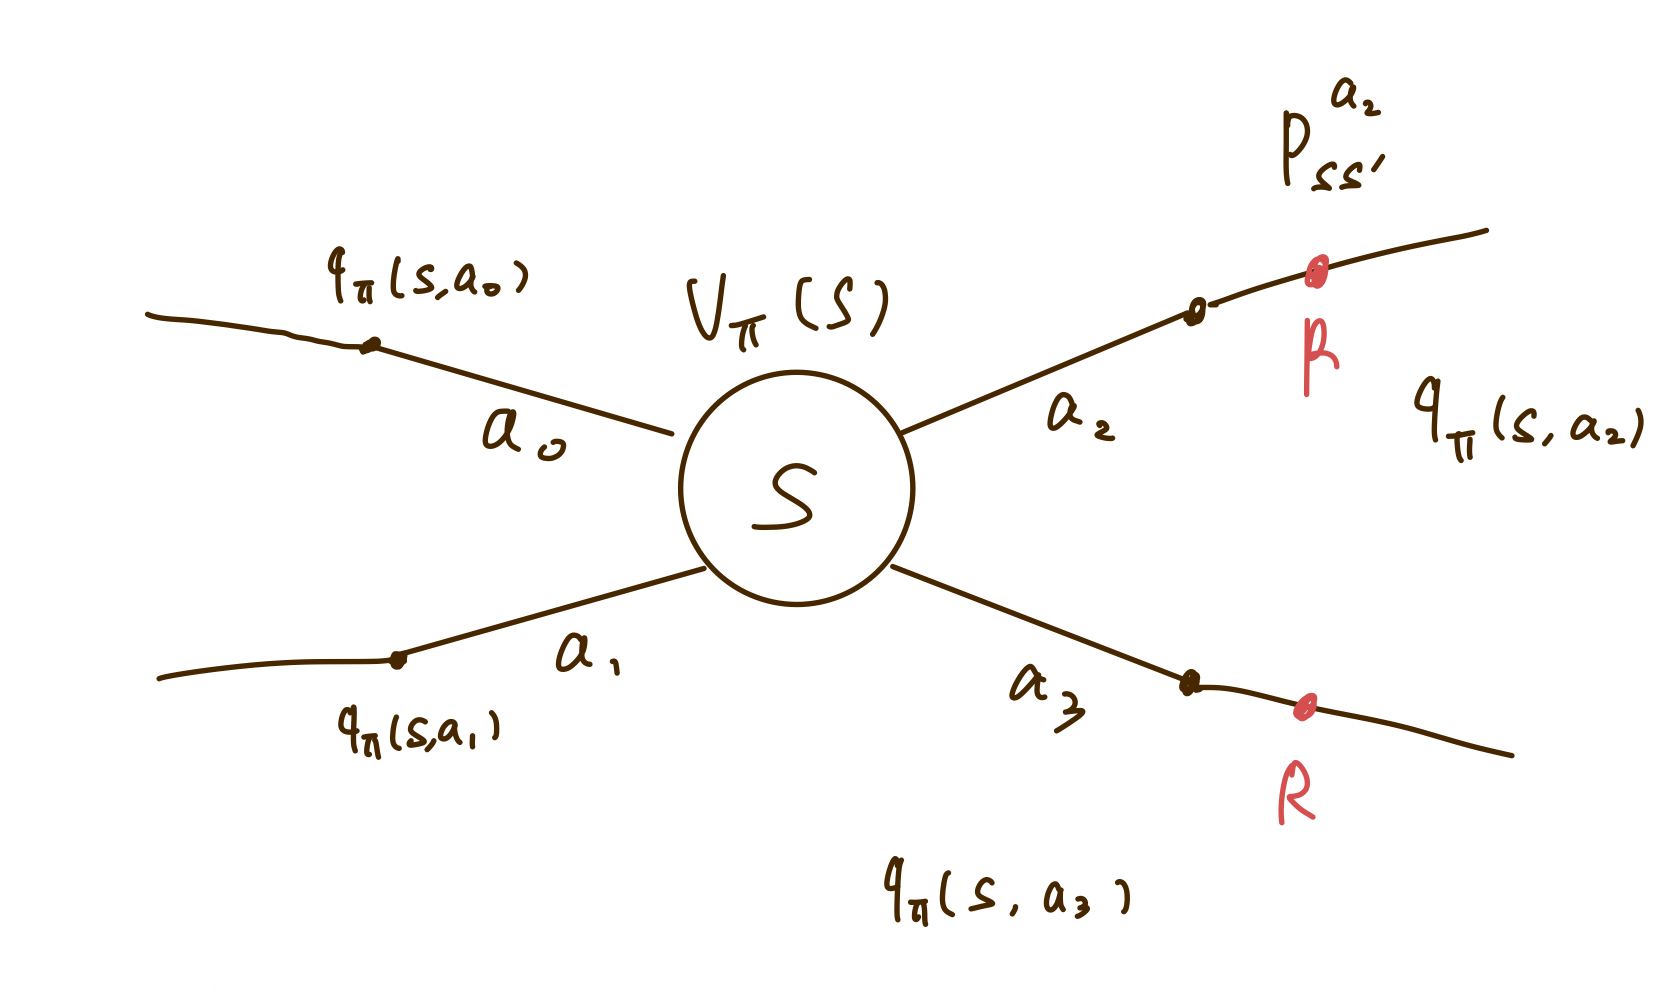 a₂
Pss′
qπ(s,a₀)
Vπ(S)
a₀
a₂
R
qπ(s,a₂)
S
a₁
a₃
qπ(s,a₁)
R
qπ(s,a₃)